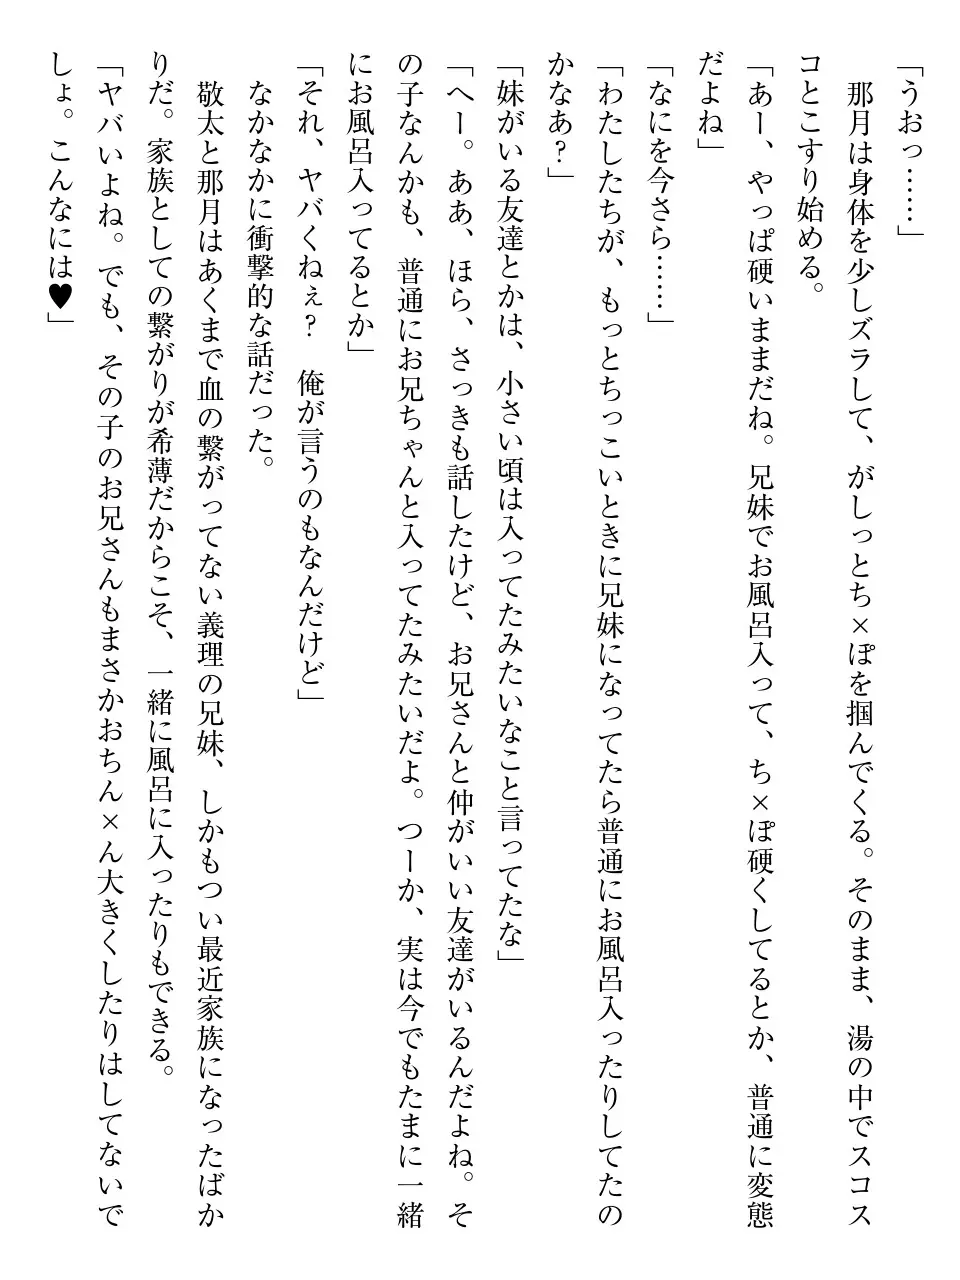 「うおっ……」
那月は身体を少しズラして、がしっとち×ぽを掴んでくる。そのまま、湯の中でスコス
コとこすり始める。
「あー、やっぱ硬いままだね。兄妹でお風呂入って、ち×ぽ硬くしてるとか、普通に変態
だよね」
「なにを今さら……」
「わたしたちが、もっとちっこいときに兄妹になってたら普通にお風呂入ったりしてたの
かなあ?」
「妹がいる友達とかは、小さい頃は入ってたみたいなこと言ってたな」
「へー。ああ、ほら、さっきも話したけど、お兄さんと仲がいい友達がいるんだよね。そ
の子なんかも、普通にお兄ちゃんと入ってたみたいだよ。つーか、実は今でもたまに一緒
にお風呂入ってるとか」
「それ、ヤバくねぇ?　俺が言うのもなんだけど」
なかなかに衝撃的な話だった。
敬太と那月はあくまで血の繋がってない義理の兄妹、しかもつい最近家族になったばか
りだ。家族としての繋がりが希薄だからこそ、一緒に風呂に入ったりもできる。
「ヤバいよね。でも、その子のお兄さんもまさかおちん×ん大きくしたりはしてないで
しょ。こんなには♥」